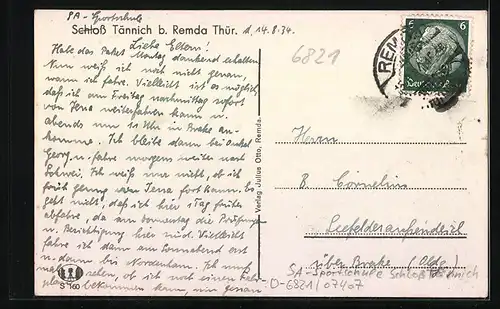 SA-Sportschule
Schloß Tännich b. Remda Thür. d. 14.8.34.
Liebe Eltern!
Habe das Paket Montag dankend erhalten
Nun weiß ich noch nicht genau,
wann ich fahre. Vielleicht ist es möglich,
daß ich am Freitag nachmittag sofort
von Jena weiterfahren kann u.
abends um 11 Uhr in Brake an-
komme. Ich bleibe dann bei Onkel
Georg u. fahre morgens weiter nach
Ich weiß nur nicht, ob ich
früh genug von Jena fort kann. Es
geht nicht, daß ich hier 1 Tag früher
abfahre, da am Donnerstag die Prüfungen
u. Besichtigung hier sind. Vielleicht
fahre ich dann am Sonnabend erst
u. dann bei Nordenham. Ich muß
sehen, ob ich noch einen
bekommen kann, bin genau
S 160
Verlag Julius Otto, Remda.
6821
REM
6
6
Deutsches
Herrn
B. Cornelius
Seefelderaußendeich
über Brake (Oldg.)
SA-Sportschule Schloß Tännich
D-6821/07407